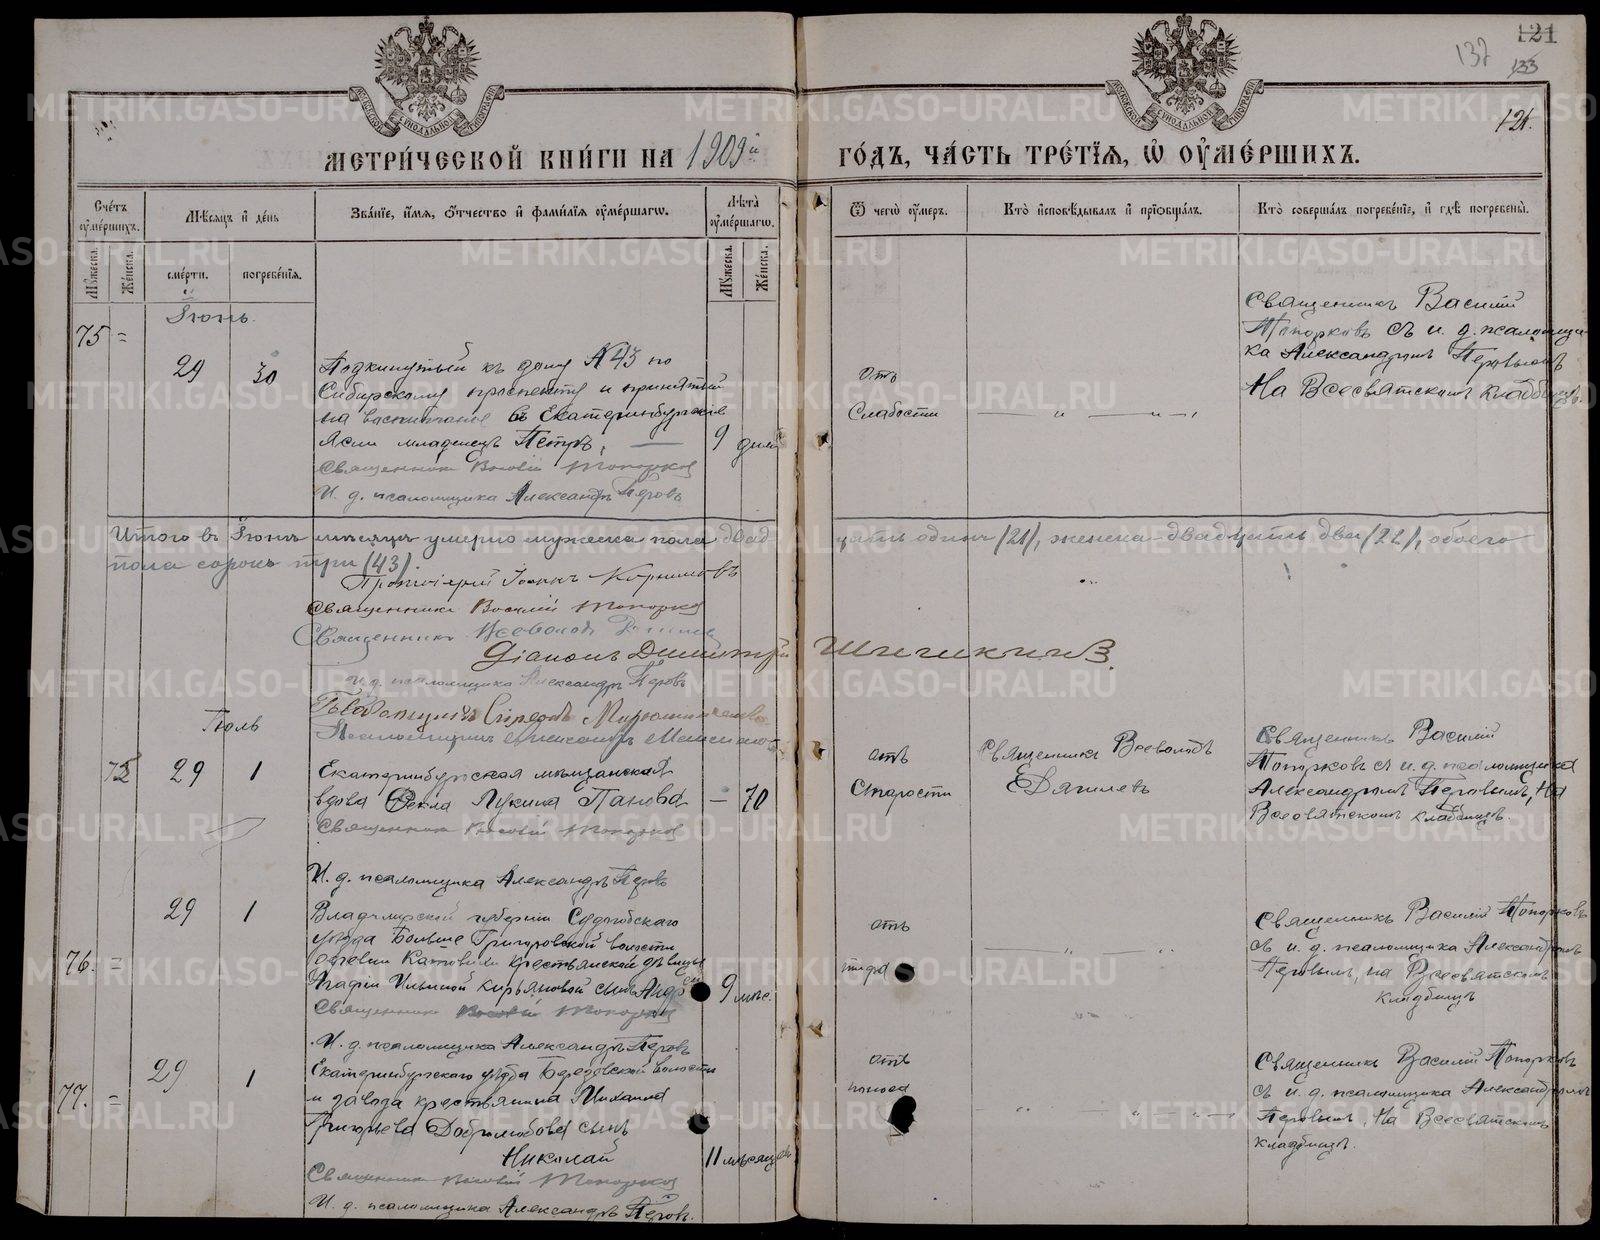 121
132
133
121.
МЕТРИ́ЧЕСКОЙ КНИ́ГИ НА 1909й ГО́ДЪ, ЧА́СТЬ ТРЕ́ТІѦ, Ѡ ОУМЕ́РШИХЪ.
Сче́тъ оуме́ршихъ.
Мѣсѧцъ и де́нь
Зва́нїе, и́мѧ, ѻ҆́тчество и фами́лїѧ оуме́ршагѡ.
Лѣта̀ оуме́ршагѡ.
Ѿ чегѡ̀ оу́меръ.
Кто̀ и҆сповѣ́дывалъ и прїѡбща́лъ.
Кто̀ соверша́лъ погребе́нїе, и гдѣ̀ погребены̀.
Мꙋ́жеска.
Же́нска.
сме́рти.
погребе́нїѧ.
Мꙋ́жеска.
Же́нска.
Іюнь.
75 =
29
30
Подкинутый къ дому N 43 по
Сибирскому проспекту и принятый
на воспитание въ Екатеринбургскіе
Ясли младенецъ Петръ.
9 дней
Священникъ Василій Топорков
И. д. псаломщика Александръ Перовъ
отъ
Слабости
Священникъ Василій
Топорковъ съ и. д. псаломщи-
ка Александромъ Перовымъ
На Всесвятскомъ кладбищѣ.
Итого въ Іюнѣ мѣсяцѣ умерло мужеска пола двад-
цать одинъ (21), женска - двадцать два (22), обоего
пола сорокъ три (43).
Протоіерей Іоаннъ Корниловъ
Священникъ Василій Топорков
Священникъ Всеволодъ
Діаконъ Димитрій Шишкинъ.
И. д. псаломщика Александръ Перовъ
Псаломщикъ
Іюль
75
29
1
Екатеринбургская мѣщанская
вдова Ѳекла Лукина Панова
— 70
Священникъ Василій Топорков
И. д. псаломщика Александръ Перовъ
отъ
Старости
Священникъ Всеволодъ
Дягилевъ
Священникъ Василій
Топорковъ съ и. д. псаломщика
Александромъ Перовымъ, На
Всесвятскомъ кладбищѣ.
76. =
29
1
Владимірской губерніи Судогодскаго
уѣзда Больше Григоровской волости
деревни крестьянской дѣвицы
Агафіи Ильиной Кирьяновой сынъ Андрей
9 мѣс.
Священникъ Василій Топорков
И. д. псаломщика Александръ Перовъ
отъ
Священникъ Василій Топорковъ
съ и. д. псаломщика Александромъ
Перовымъ, на Всесвятскомъ
кладбищѣ
77. =
29
1
Екатеринбургскаго уѣзда Березовской волости
и завода крестьянина Михаила
Григорьева Добролюбова сынъ
Николай
11 мѣсяцевъ
Священникъ Василій Топорков
И. д. псаломщика Александръ Перовъ.
отъ
поноса
Священникъ Василій Топорковъ
съ и. д. псаломщика Александромъ
Перовымъ, На Всесвятскомъ
кладбищѣ.
METRIKI.GASO-URAL.RU